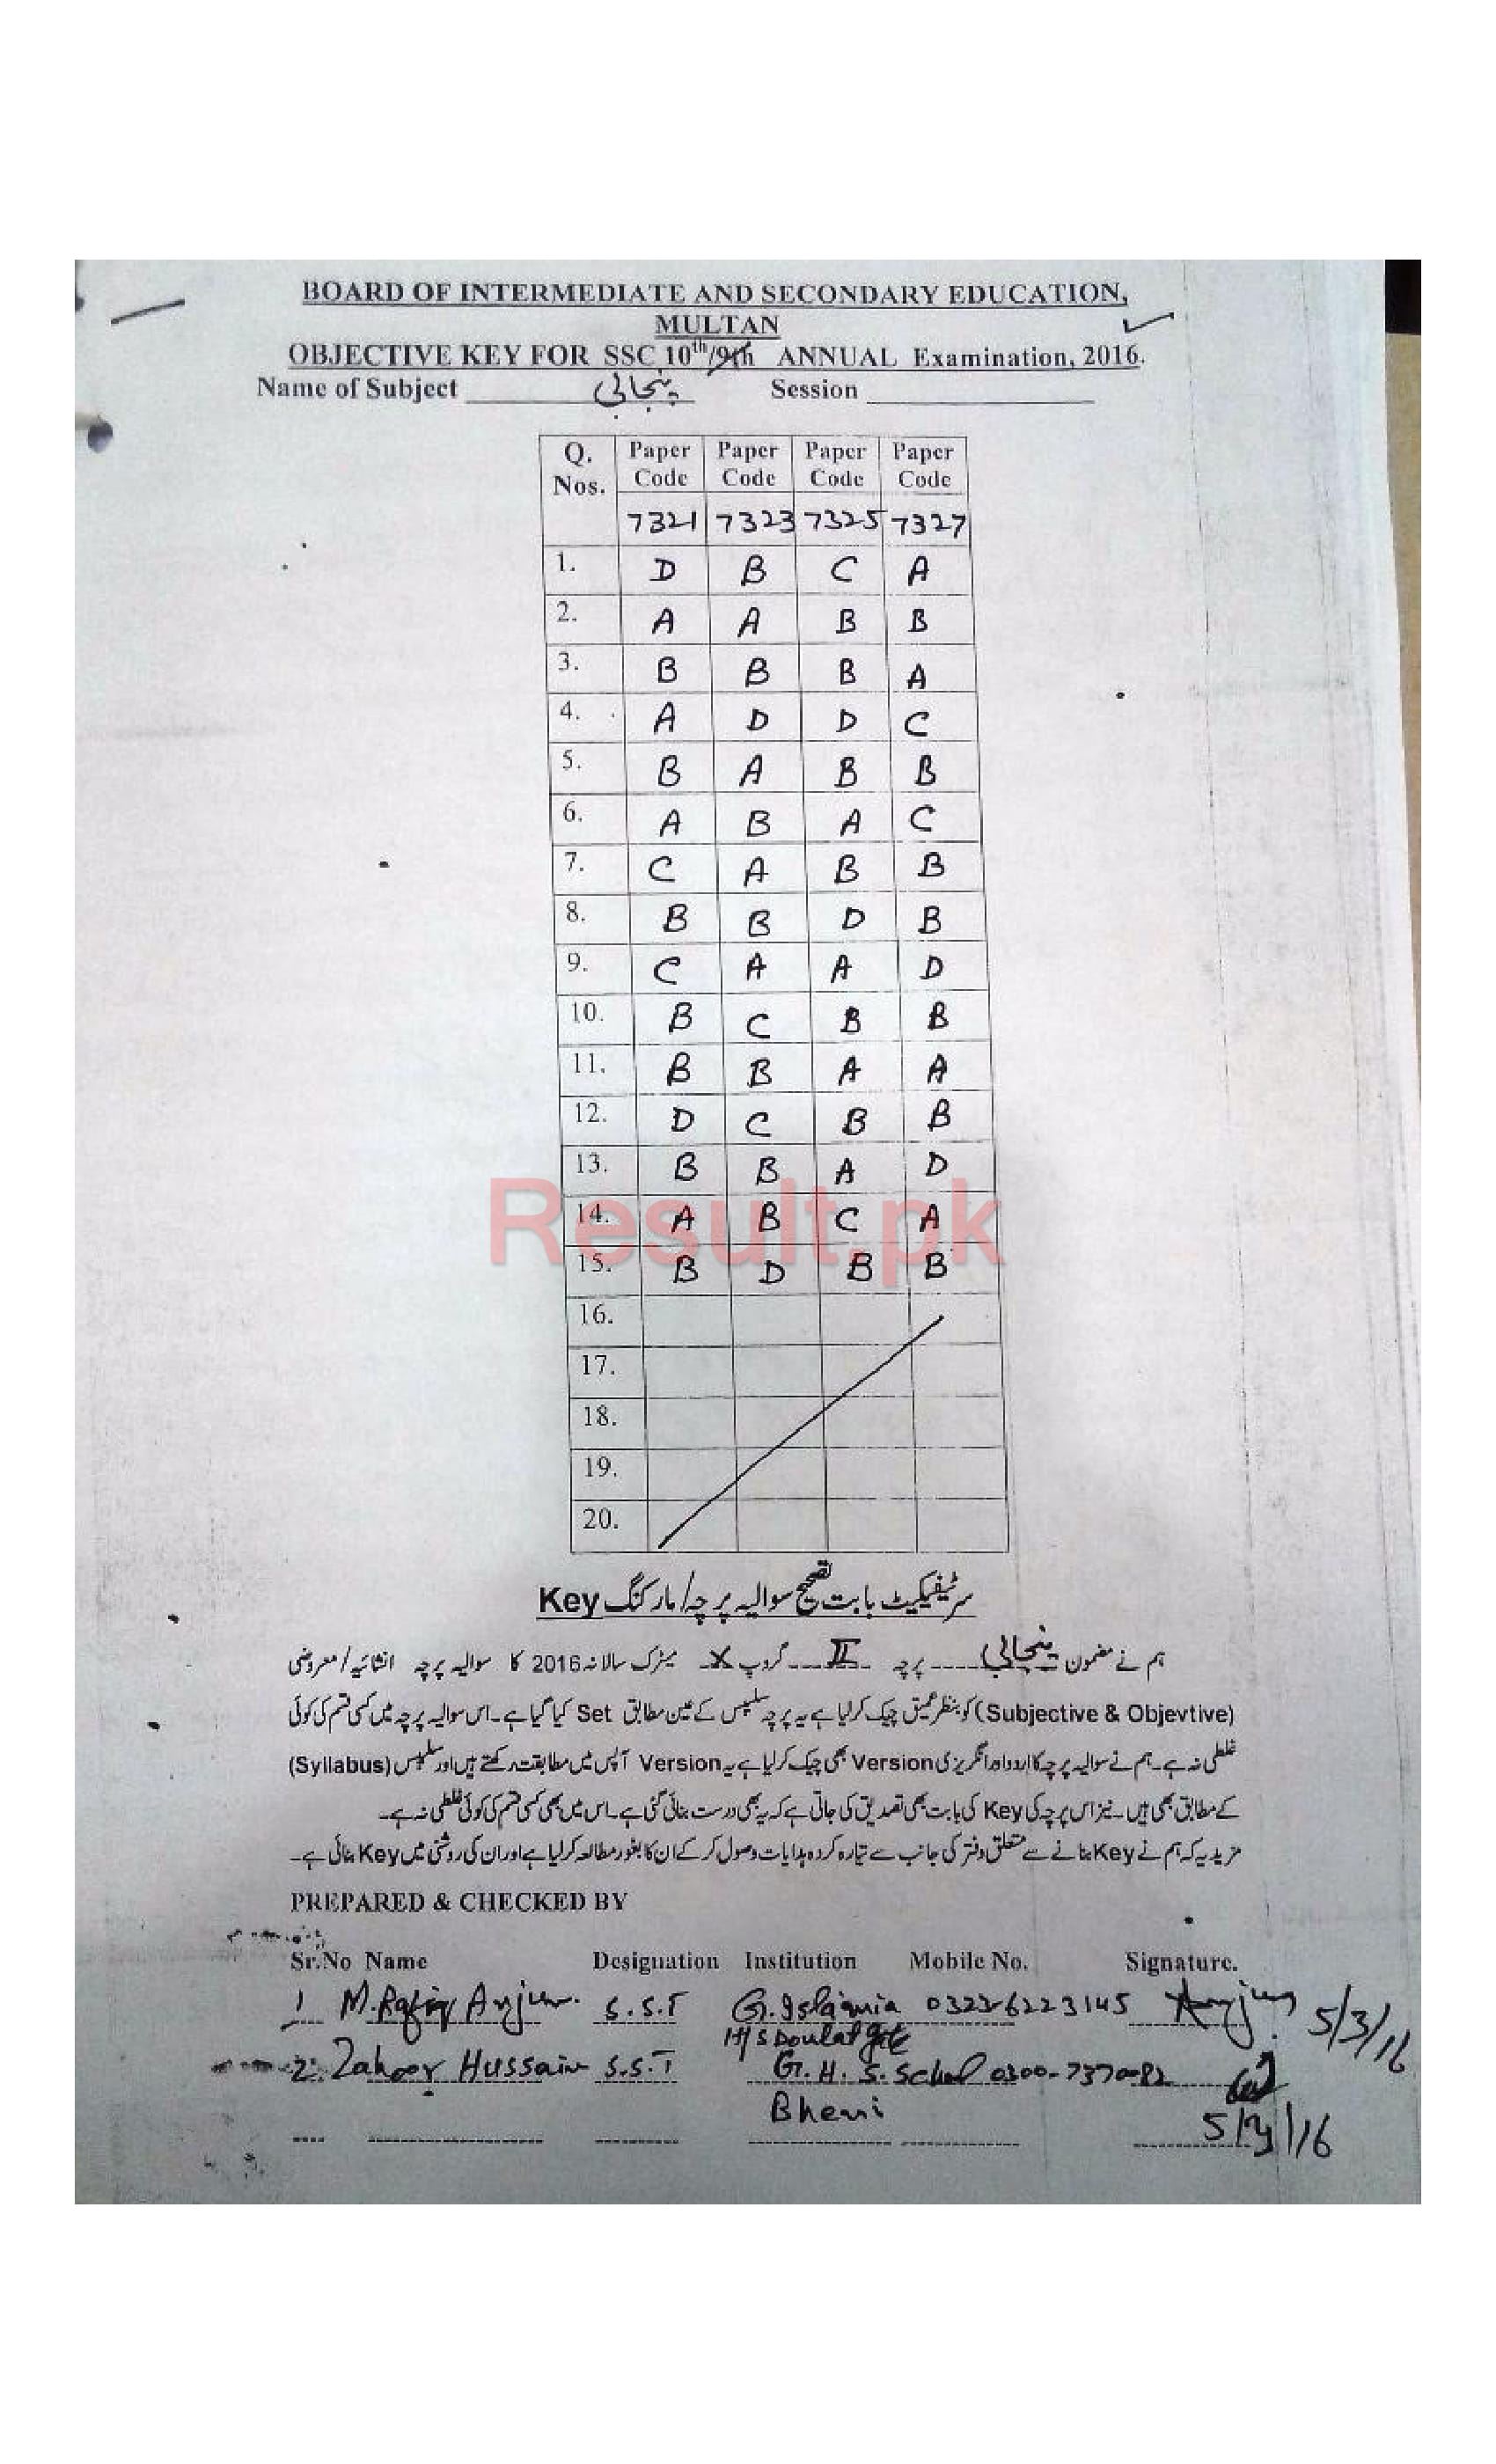 BOARD OF INTERMEDIATE AND SECONDARY EDUCATION,
MULTAN
OBJECTIVE KEY FOR SSC 10th/9th ANNUAL Examination, 2016.
Name of Subject پنجابی Session
Q. Nos. Paper Code Paper Code Paper Code Paper Code
7321 7323 7325 7327
1. D B C A
2. A A B B
3. B B B A
4. A D D C
5. B A B B
6. A B A C
7. C A B B
8. B B D B
9. C A A D
10. B C B B
11. B B A A
12. D C B B
13. B B A D
14. A B C A
15. B D B B
16.
17.
18.
19.
20.
Result.pk
سرٹیفکیٹ بابت تصحیح سوالیہ پرچہ/مارکنگ Key
ہم نے مضمون پنجابی پرچہ II گروپ X میٹرک سالانہ 2016 کا سوالیہ پرچہ انشائیہ/معروضی
(Subjective & Objevtive) کو بنظر عمیق چیک کرلیا ہے یہ پرچہ سلیبس کے عین مطابق Set کیا گیا ہے۔ اس سوالیہ پرچہ میں کسی قسم کی کوئی
غلطی نہ ہے۔ ہم نے سوالیہ پرچہ کا اردو اور انگریزی Version بھی چیک کرلیا ہے یہ Version آپس میں مطابقت رکھتے ہیں اور سلیبس (Syllabus)
کے مطابق بھی ہیں۔ نیز اس پرچہ کی Key کی بابت بھی تصدیق کی جاتی ہے کہ یہ بھی درست بنائی گئی ہے۔ اس میں بھی کسی قسم کی کوئی غلطی نہ ہے۔
مزید یہ کہ ہم نے Key بنانے سے متعلق دفتر کی جانب سے تیارہ کردہ ہدایات وصول کر کے ان کا بغور مطالعہ کرلیا ہے اور ان کی روشنی میں Key بنائی ہے۔
PREPARED & CHECKED BY
Sr.No Name Designation Institution Mobile No. Signature.
1 M.Rafiq Anjum. S.S.T G.Islamia 0323-6223145 Anjum 5/3/16
H/S Doulat gate
2. Zahoor Hussain S.S.T G.H.S.School 0300-737082
Bheni
5/3/16